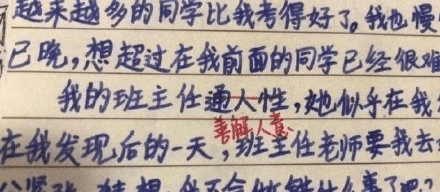 越来越多的同学比我考得好了。我也慢
已晚,想超过在我前面的同学已经很难
我的班主任通人性,她似乎在我
善解人意
在我发现后的一天,班主任老师要我去